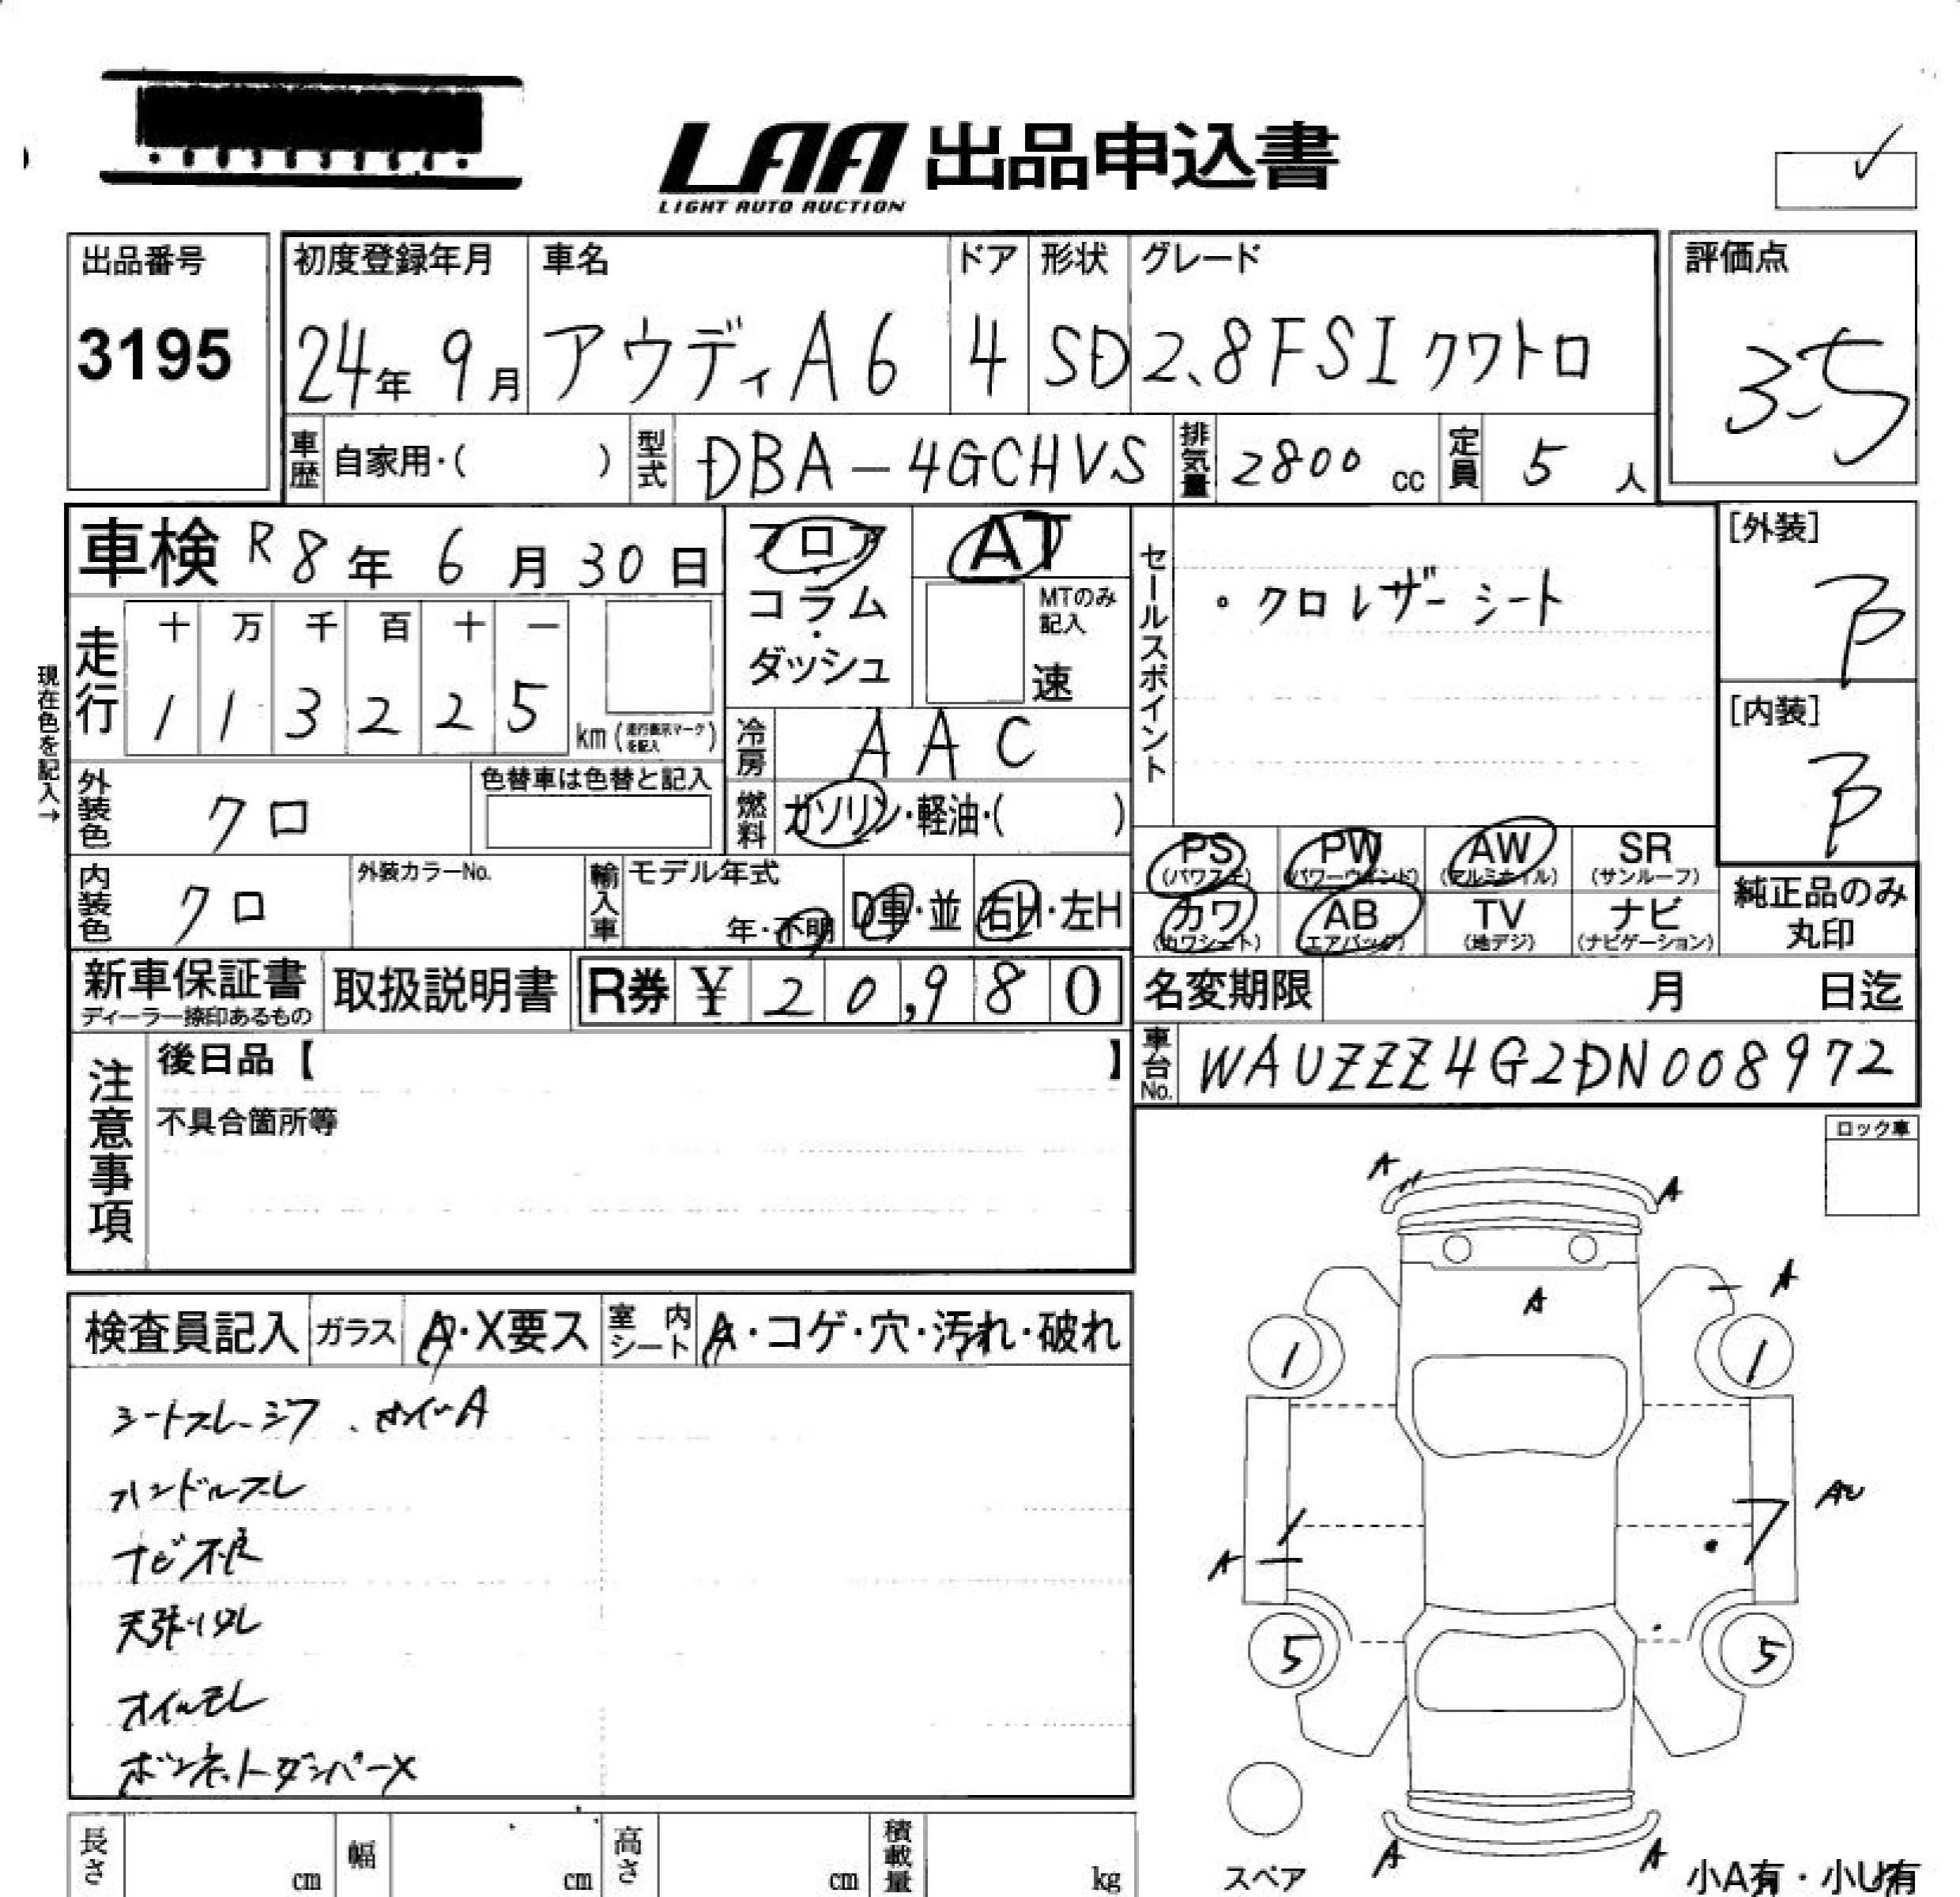 LAA 出品申込書
LIGHT AUTO AUCTION
出品番号
3195
初度登録年月
24年 9月
車名
アウディ A6
ドア
4
形状
SD
グレード
2.8FSI クワトロ
評価点
3.5
車歴 自家用・( )
型式 DBA-4GCHVS
排気量 2800 cc
定員 5 人
車検 R8年 6月 30日
フロア・コラム・ダッシュ
AT
MTのみ記入
速
セールスポイント
・クロレザーシート
[外装]
B
[内装]
B
現在色を記入→
走行
十 万 千 百 十 一
1 1 3 2 2 5
km (走行表示マークを記入)
冷房 AAC
外装色 クロ
色替車は色替と記入
燃料 ガソリン・軽油・( )
内装色 クロ
外装カラーNo.
輸入車
モデル年式
年・不明
D車・並
右H・左H
PS (パワステ)
PW (パワーウィンド)
AW (アルミホイル)
SR (サンルーフ)
カワ (カワシート)
AB (エアバッグ)
TV (地デジ)
ナビ (ナビゲーション)
純正品のみ丸印
新車保証書
ディーラー捺印あるもの
取扱説明書
R券 ¥ 20,980
名変期限 月 日迄
車台No. WAUZZZ4G2DN008972
注意事項
後日品【 】
不具合箇所等
ロック車
検査員記入
ガラス A・X要ス
室内シート A・コゲ・穴・汚れ・破れ
シートスレ・シワ
ハンドルスレ
ナビ不良
天張りタレ
オイルモレ
ボンネットダンパーX
A
A
A
A
1
1
AU
A
5
5
A
A
スペア
小A有・小U有
長さ cm
幅 cm
高さ cm
積載量 kg